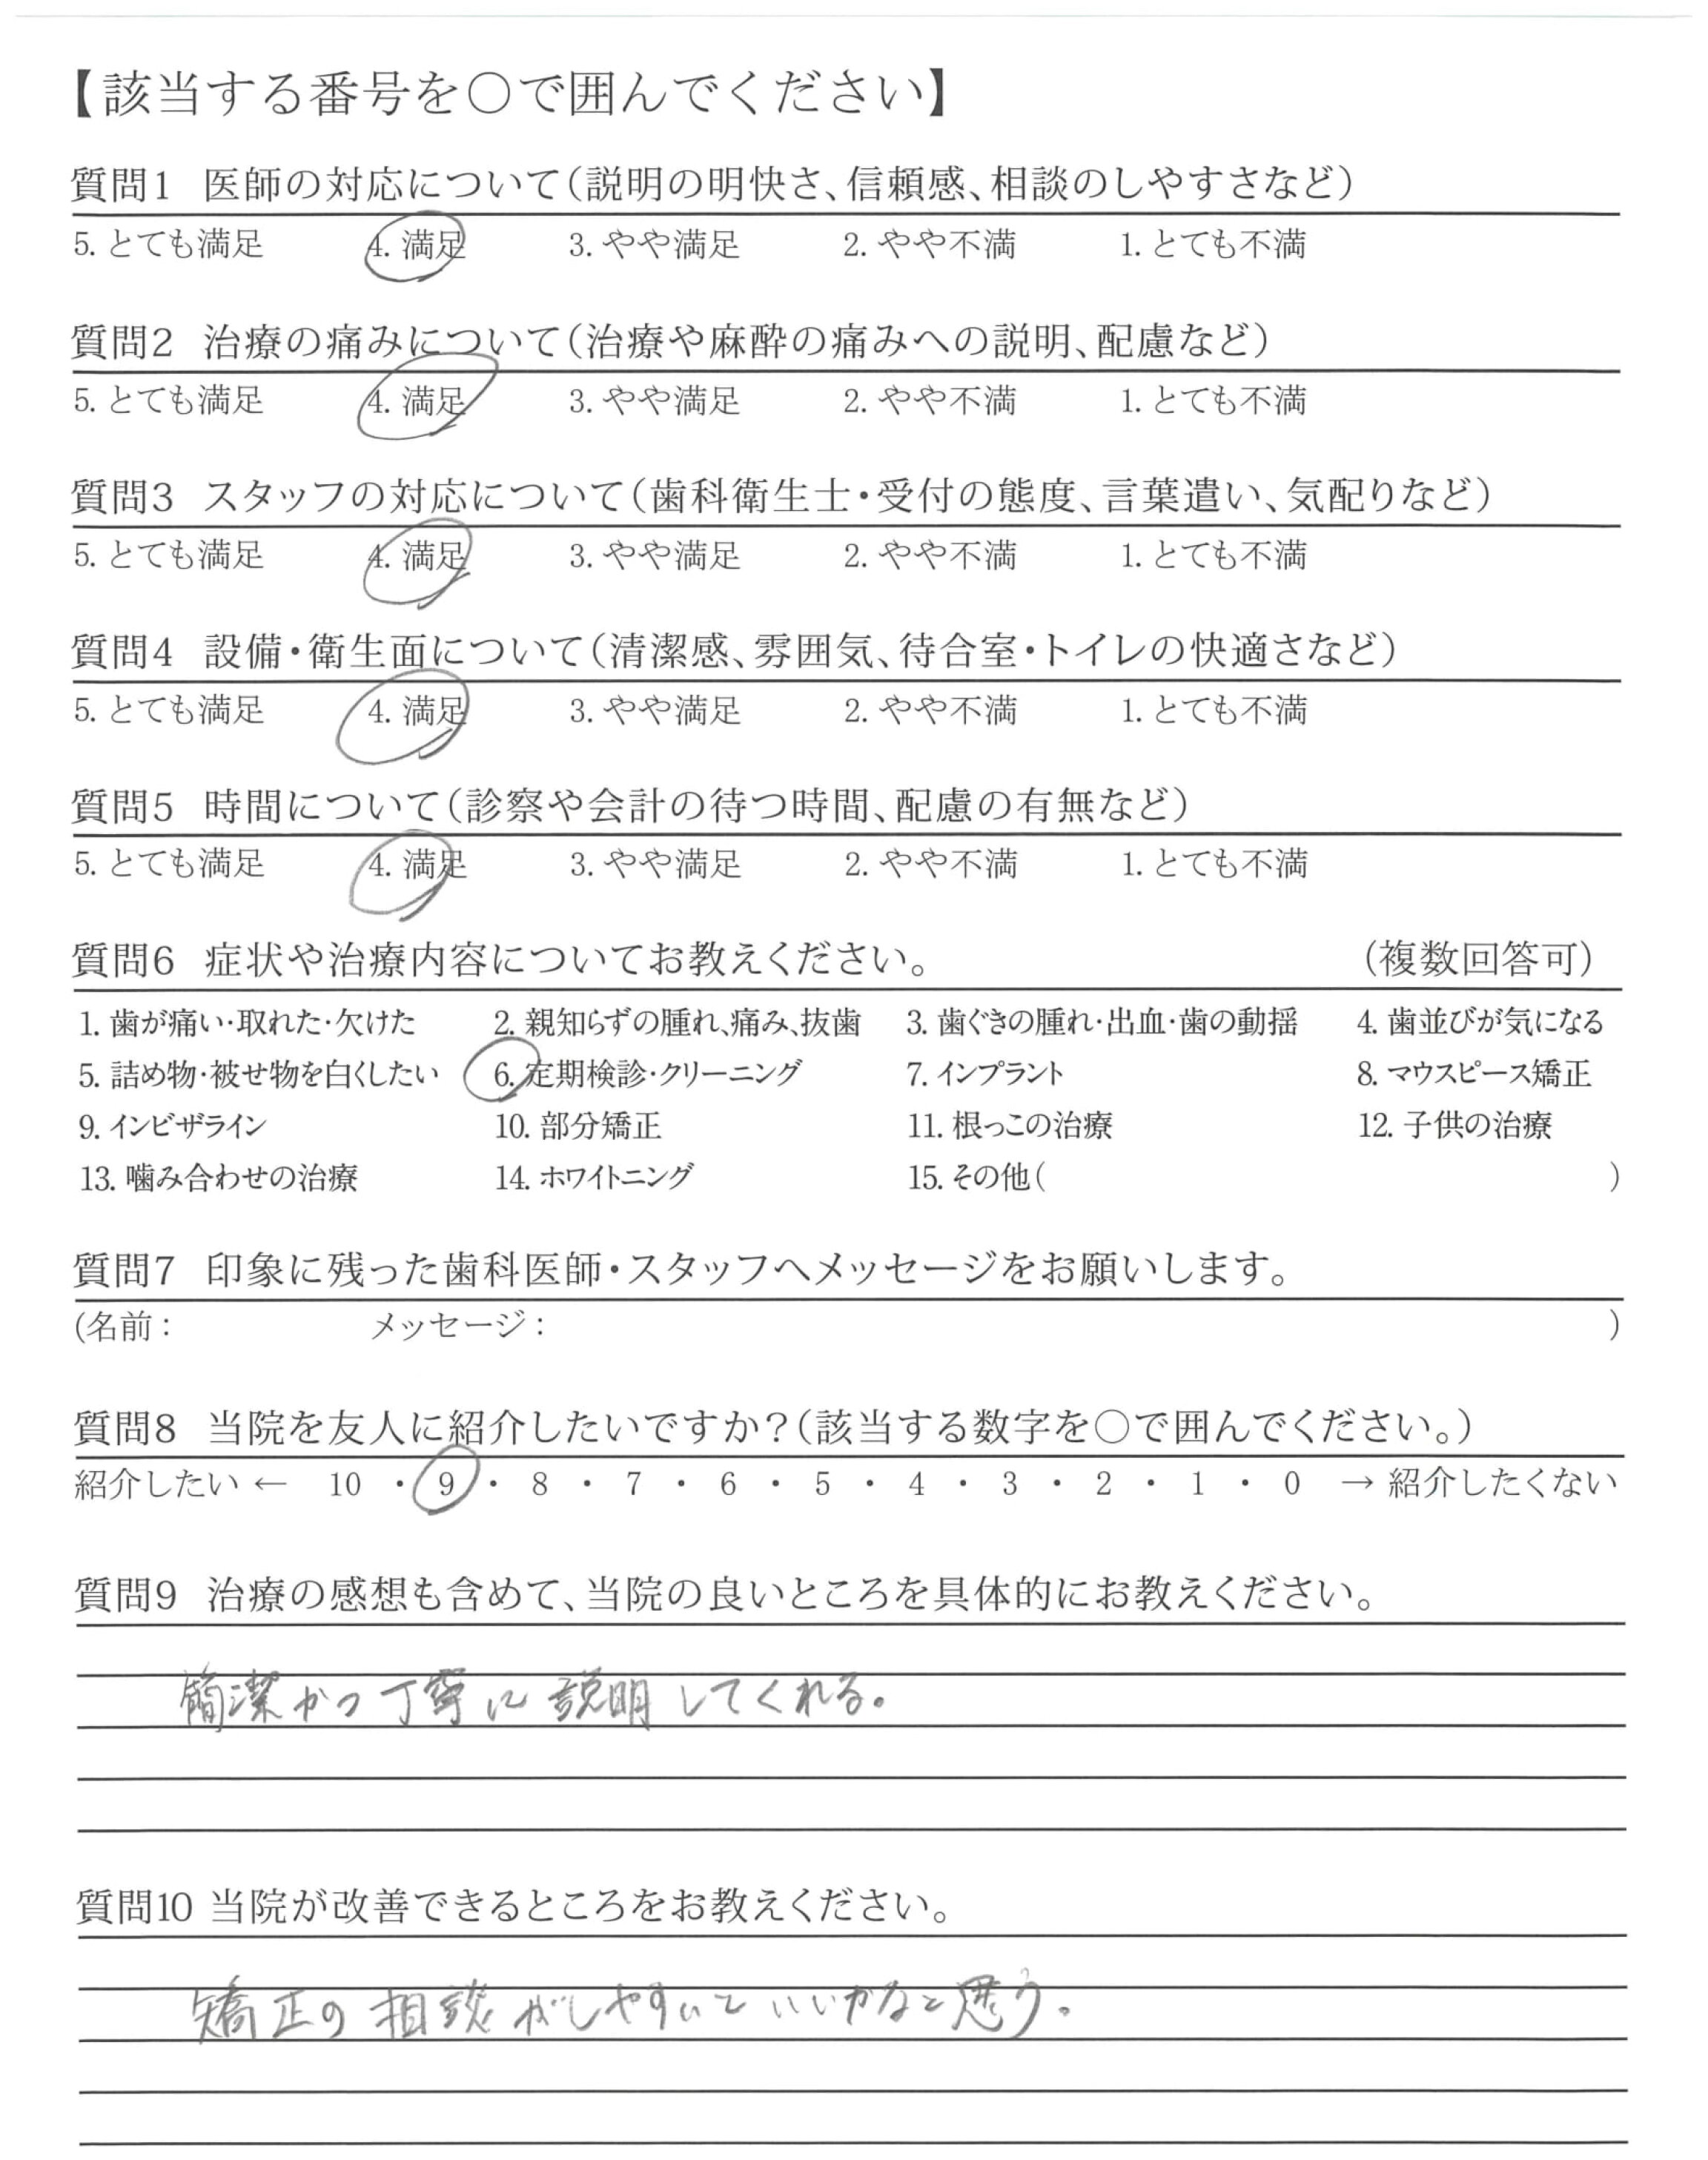 【該当する番号を○で囲んでください】
質問1 医師の対応について(説明の明快さ、信頼感、相談のしやすさなど)
5. とても満足 4. 満足 3. やや満足 2. やや不満 1. とても不満
質問2 治療の痛みについて(治療や麻酔の痛みへの説明、配慮など)
5. とても満足 4. 満足 3. やや満足 2. やや不満 1. とても不満
質問3 スタッフの対応について(歯科衛生士・受付の態度、言葉遣い、気配りなど)
5. とても満足 4. 満足 3. やや満足 2. やや不満 1. とても不満
質問4 設備・衛生面について(清潔感、雰囲気、待合室・トイレの快適さなど)
5. とても満足 4. 満足 3. やや満足 2. やや不満 1. とても不満
質問5 時間について(診察や会計の待つ時間、配慮の有無など)
5. とても満足 4. 満足 3. やや満足 2. やや不満 1. とても不満
質問6 症状や治療内容についてお教えください。 (複数回答可)
1. 歯が痛い・取れた・欠けた 2. 親知らずの腫れ、痛み、抜歯 3. 歯ぐきの腫れ・出血・歯の動揺 4. 歯並びが気になる
5. 詰め物・被せ物を白くしたい 6. 定期検診・クリーニング 7. インプラント 8. マウスピース矯正
9. インビザライン 10. 部分矯正 11. 根っこの治療 12. 子供の治療
13. 噛み合わせの治療 14. ホワイトニング 15. その他( )
質問7 印象に残った歯科医師・スタッフへメッセージをお願いします。
(名前： メッセージ： )
質問8 当院を友人に紹介したいですか?(該当する数字を○で囲んでください。)
紹介したい ← 10 ・ 9 ・ 8 ・ 7 ・ 6 ・ 5 ・ 4 ・ 3 ・ 2 ・ 1 ・ 0 → 紹介したくない
質問9 治療の感想も含めて、当院の良いところを具体的にお教えください。
簡潔かつ丁寧に説明してくれる。
質問10 当院が改善できるところをお教えください。
矯正の相談がしやすいといいかなと思う。